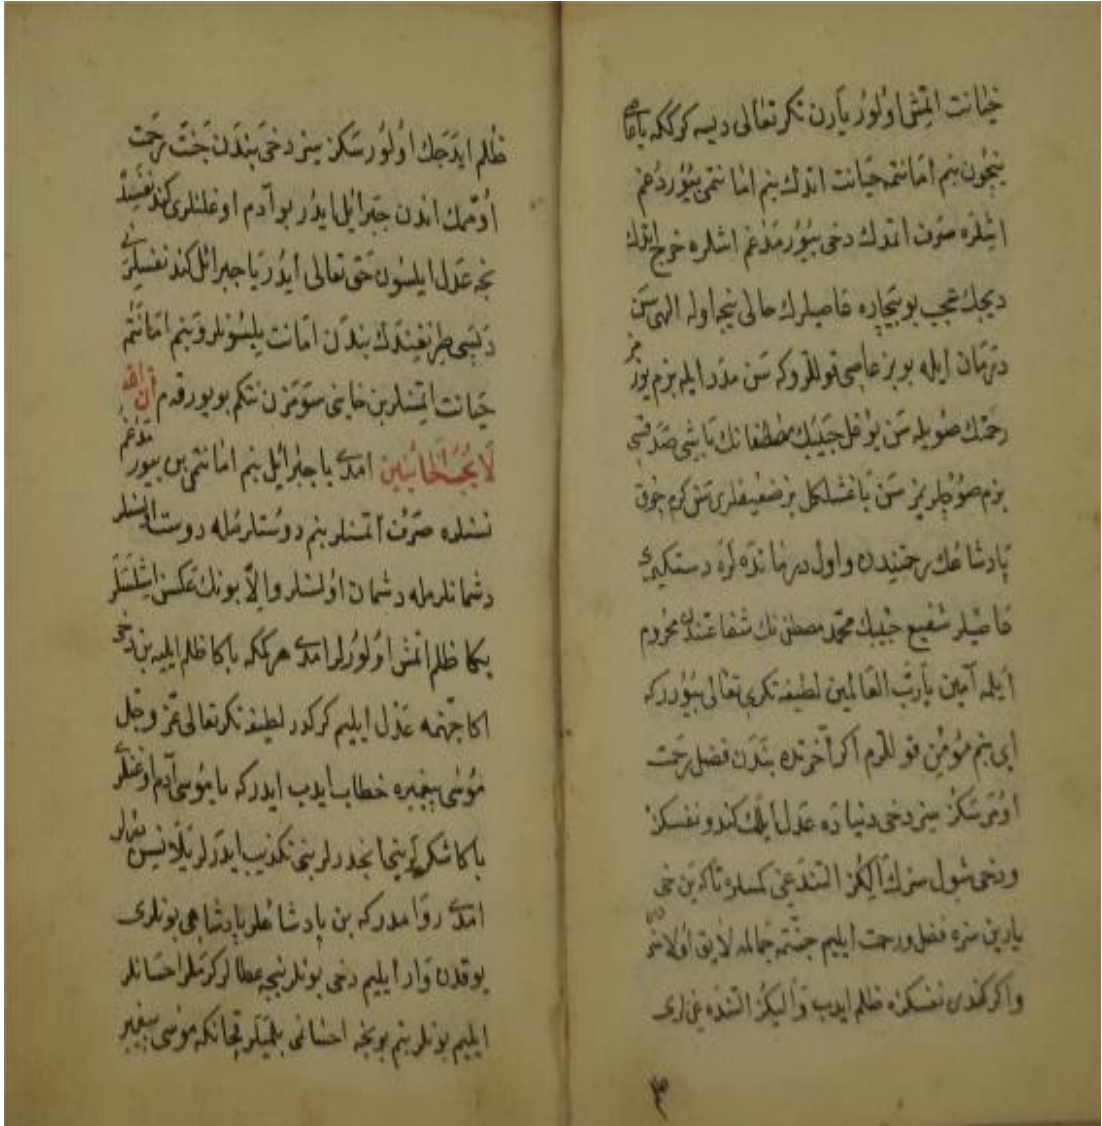 خیانت اتمش اولور یارن تکر تعالی دیسه کرککه یا عاصی
نیچون بنم امانتمه خیانت اتدك بنم امانتمی بیوردغم
اشلره صرف اتدك دخی بیورمدغم اشلره خرج اتدك
دیجك عجب بو بیچاره عاصیلرك حالی نیجه اوله الهی سن
درمان ایله بو بز عاصی قوللروکه سن مدد ایله بزم یوز
رحمتك صویله سن یوغل حبیبك مصطفانك باشی صدقی
بزم صوچلریمز سن باغشلاغل بز ضعیفلری سن کرم چوق
پادشاهك رحمتیدن و اول درمانده لره دستکیری
عاصیلر شفیع حبیبك محمد مصطفی نك شفاعتندن محروم
ایلمه آمین یا رب العالمین لطیفه تکری تعالی بیوررکه
ای بنم مؤمن قوللرم اکر آخرتده بندن فضل رحمت
اومرسکز سز دخی دنیاده عدل ایلك کندو نفسکز
ودخی شول سزك الیکز التندغی کمسلره تاکه بن دخی
یارین سزه فضل ورحمت ایلیم جنتمه جمالمه لایق اولاسز
واکر کندی نفسکزه ظلم ایدب والیکز التنده غیلری
ظلم ایدجك اولورسکز سز دخی بندن جنت رحمت
اوممك اندن جبرائل ایدر بو آدم اوغلنلری کند نفسیله
نجه عدل ایلسون حق تعالی ایدر یا جبرائل کند نفسلری
دبسی طرفیندك بندن امانت بیلسونلر و بنم امانتم
خیانت اتمسنلر بن خاینی سومزن نتکم بویورقدم ان الله
لا یحب الخائنین امدی یا جبرائل بنم امانتمی بن بیورمدغم
نسنلره صرف اتمسنلر بنم دوستلرمله دوست اولسنلر
دشمانلرمله دشمان اولسنلر والا بونك عکسن اشلسلر
بکا ظلم اتمش اولورلر امدی هرککه باکا ظلم ایلیه بن دخی
اکا جهنمه عذل ایلیم کرکدر لطیفه تکر تعالی عز و جل
موسی پیغمبره خطاب ایدب ایدرکه یا موسی آدم اوغلنلر
باکا شکر اینجا بخدرلر بنی تکذیب ایدرلر یلانیسن دیرلر
امدی روامدرکه بن پادشاهلر پادشاهی بونلری
یوقدن وار ایلیم دخی بونلر نیجه عطالر کرملر احسانلر
ایلیم بونلر بنم بونجه احسانی بلمیلر قچانکه موسی پیغمبر